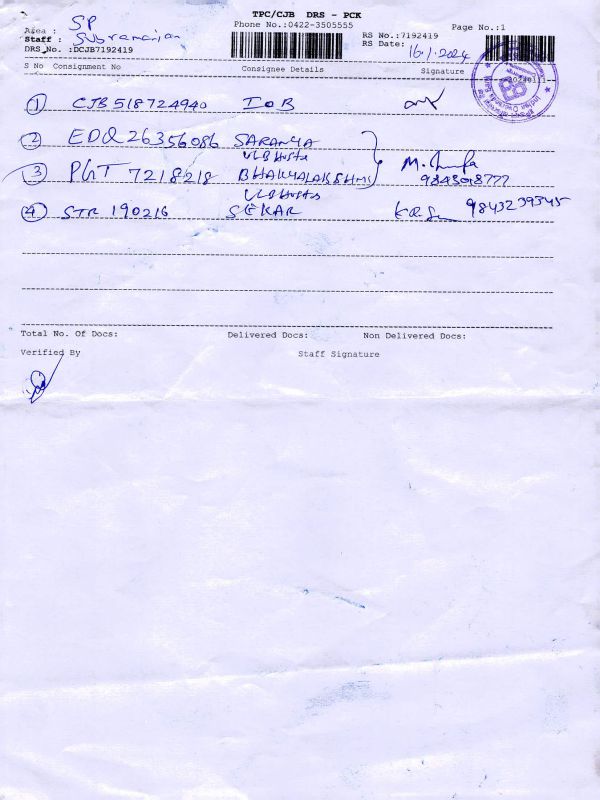 TPC/CJB DRS - PCK
Area : SP
Phone No.:0422-3505555
Page No.:1
Staff : Subramanian
RS No.:7192419
DRS No. :DCJB7192419
RS Date: 16/1/2024
S No Consignment No Consignee Details Signature
1 CJB 518724940 IOB
2 EDQ 26356086 SARANYA
3 PGT 7218218 BHAKYALAKSHMI
4 STR 190216 SEKAR 9843239345
Total No. Of Docs: Delivered Docs: Non Delivered Docs:
Verified By Staff Signature